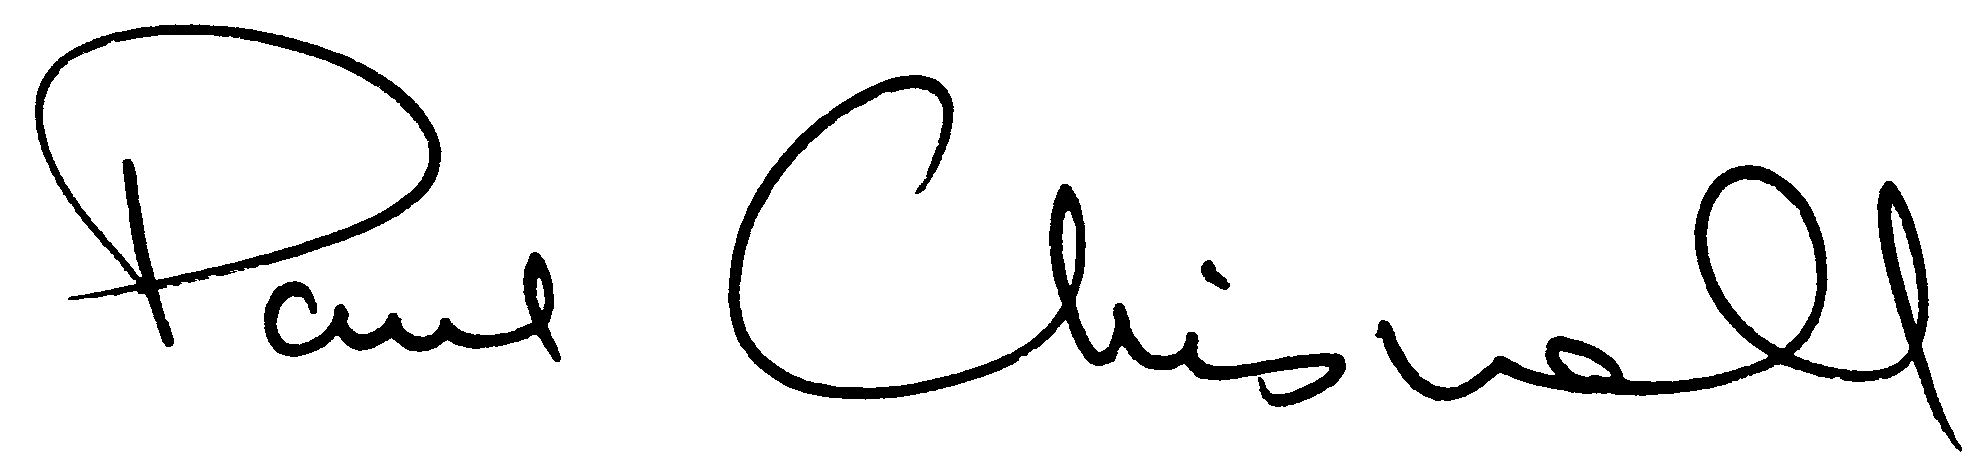 Paul Chisnall